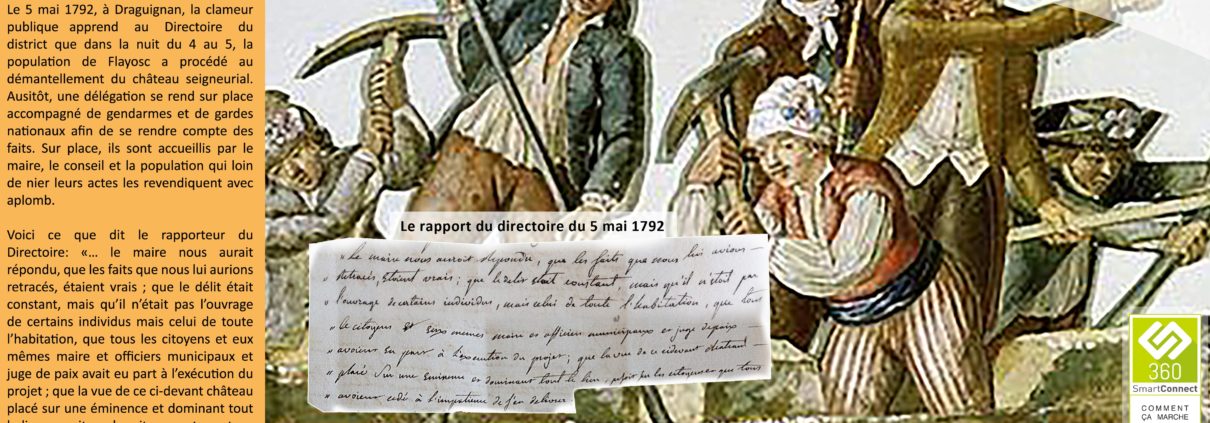 Le 5 mai 1792, à Draguignan, la clameur
publique apprend au Directoire du
district que dans la nuit du 4 au 5, la
population de Flayosc a procédé au
démantellement du château seigneurial.
Ausitôt, une délégation se rend sur place
accompagné de gendarmes et de gardes
nationaux afin de se rendre compte des
faits. Sur place, ils sont accueillis par le
maire, le conseil et la population qui loin
de nier leurs actes les revendiquent avec
aplomb.
Voici ce que dit le rapporteur du
Directoire: «… le maire nous aurait
répondu, que les faits que nous lui aurions
retracés, étaient vrais ; que le délit était
constant, mais qu’il n’était pas l’ouvrage
de certains individus mais celui de toute
l’habitation, que tous les citoyens et eux
mêmes maire et officiers municipaux et
juge de paix avait eu part à l’exécution du
projet ; que la vue de ce ci-devant château
placé sur une éminence et dominant tout
Le rapport du directoire du 5 mai 1792
" Le maire nous auroit répondu, que les faits que nous lui avions
" retracés, étoient vrais ; que le délit étoit constant, mais qu'il n'étoit pas
" l'ouvrage de certains individus, mais celui de toute l'habitation, que tous
" les citoyens et eux memes maire et officiers municipaux et juge de paix
" avoient eu part à l'execution du projet ; que la vue de ce cidevant chateau
" placé sur une eminence et dominant tout le lieu, les citoyens et que tous
" avoient cedé à
360
SmartConnect
COMMENT
ÇA MARCHE